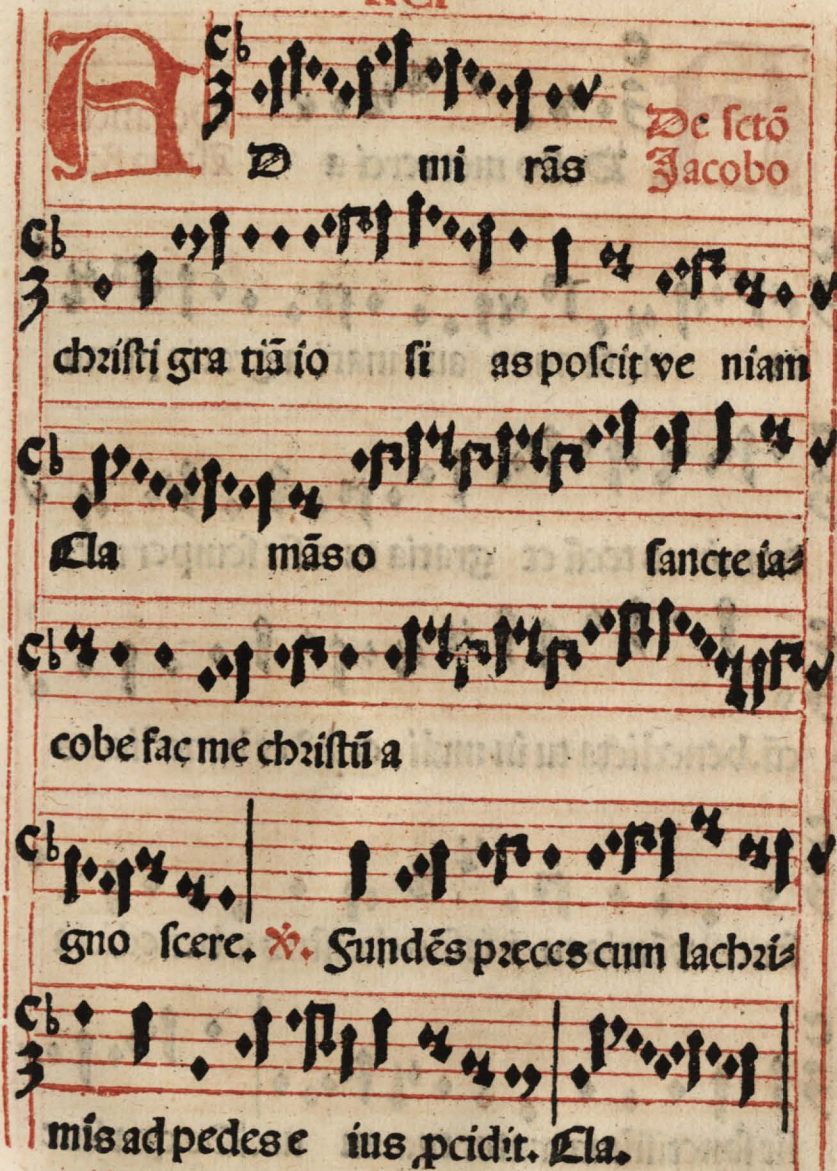 AD mi rās De sctō
Jacobo
christi gra tiā io si as poscit ve niam
Cla mās o sancte ia⸗
cobe fac me christū a
gno scere. ℣. Fundēs preces cum lachri⸗
mis ad pedes e ius ꝓcidit. Cla.